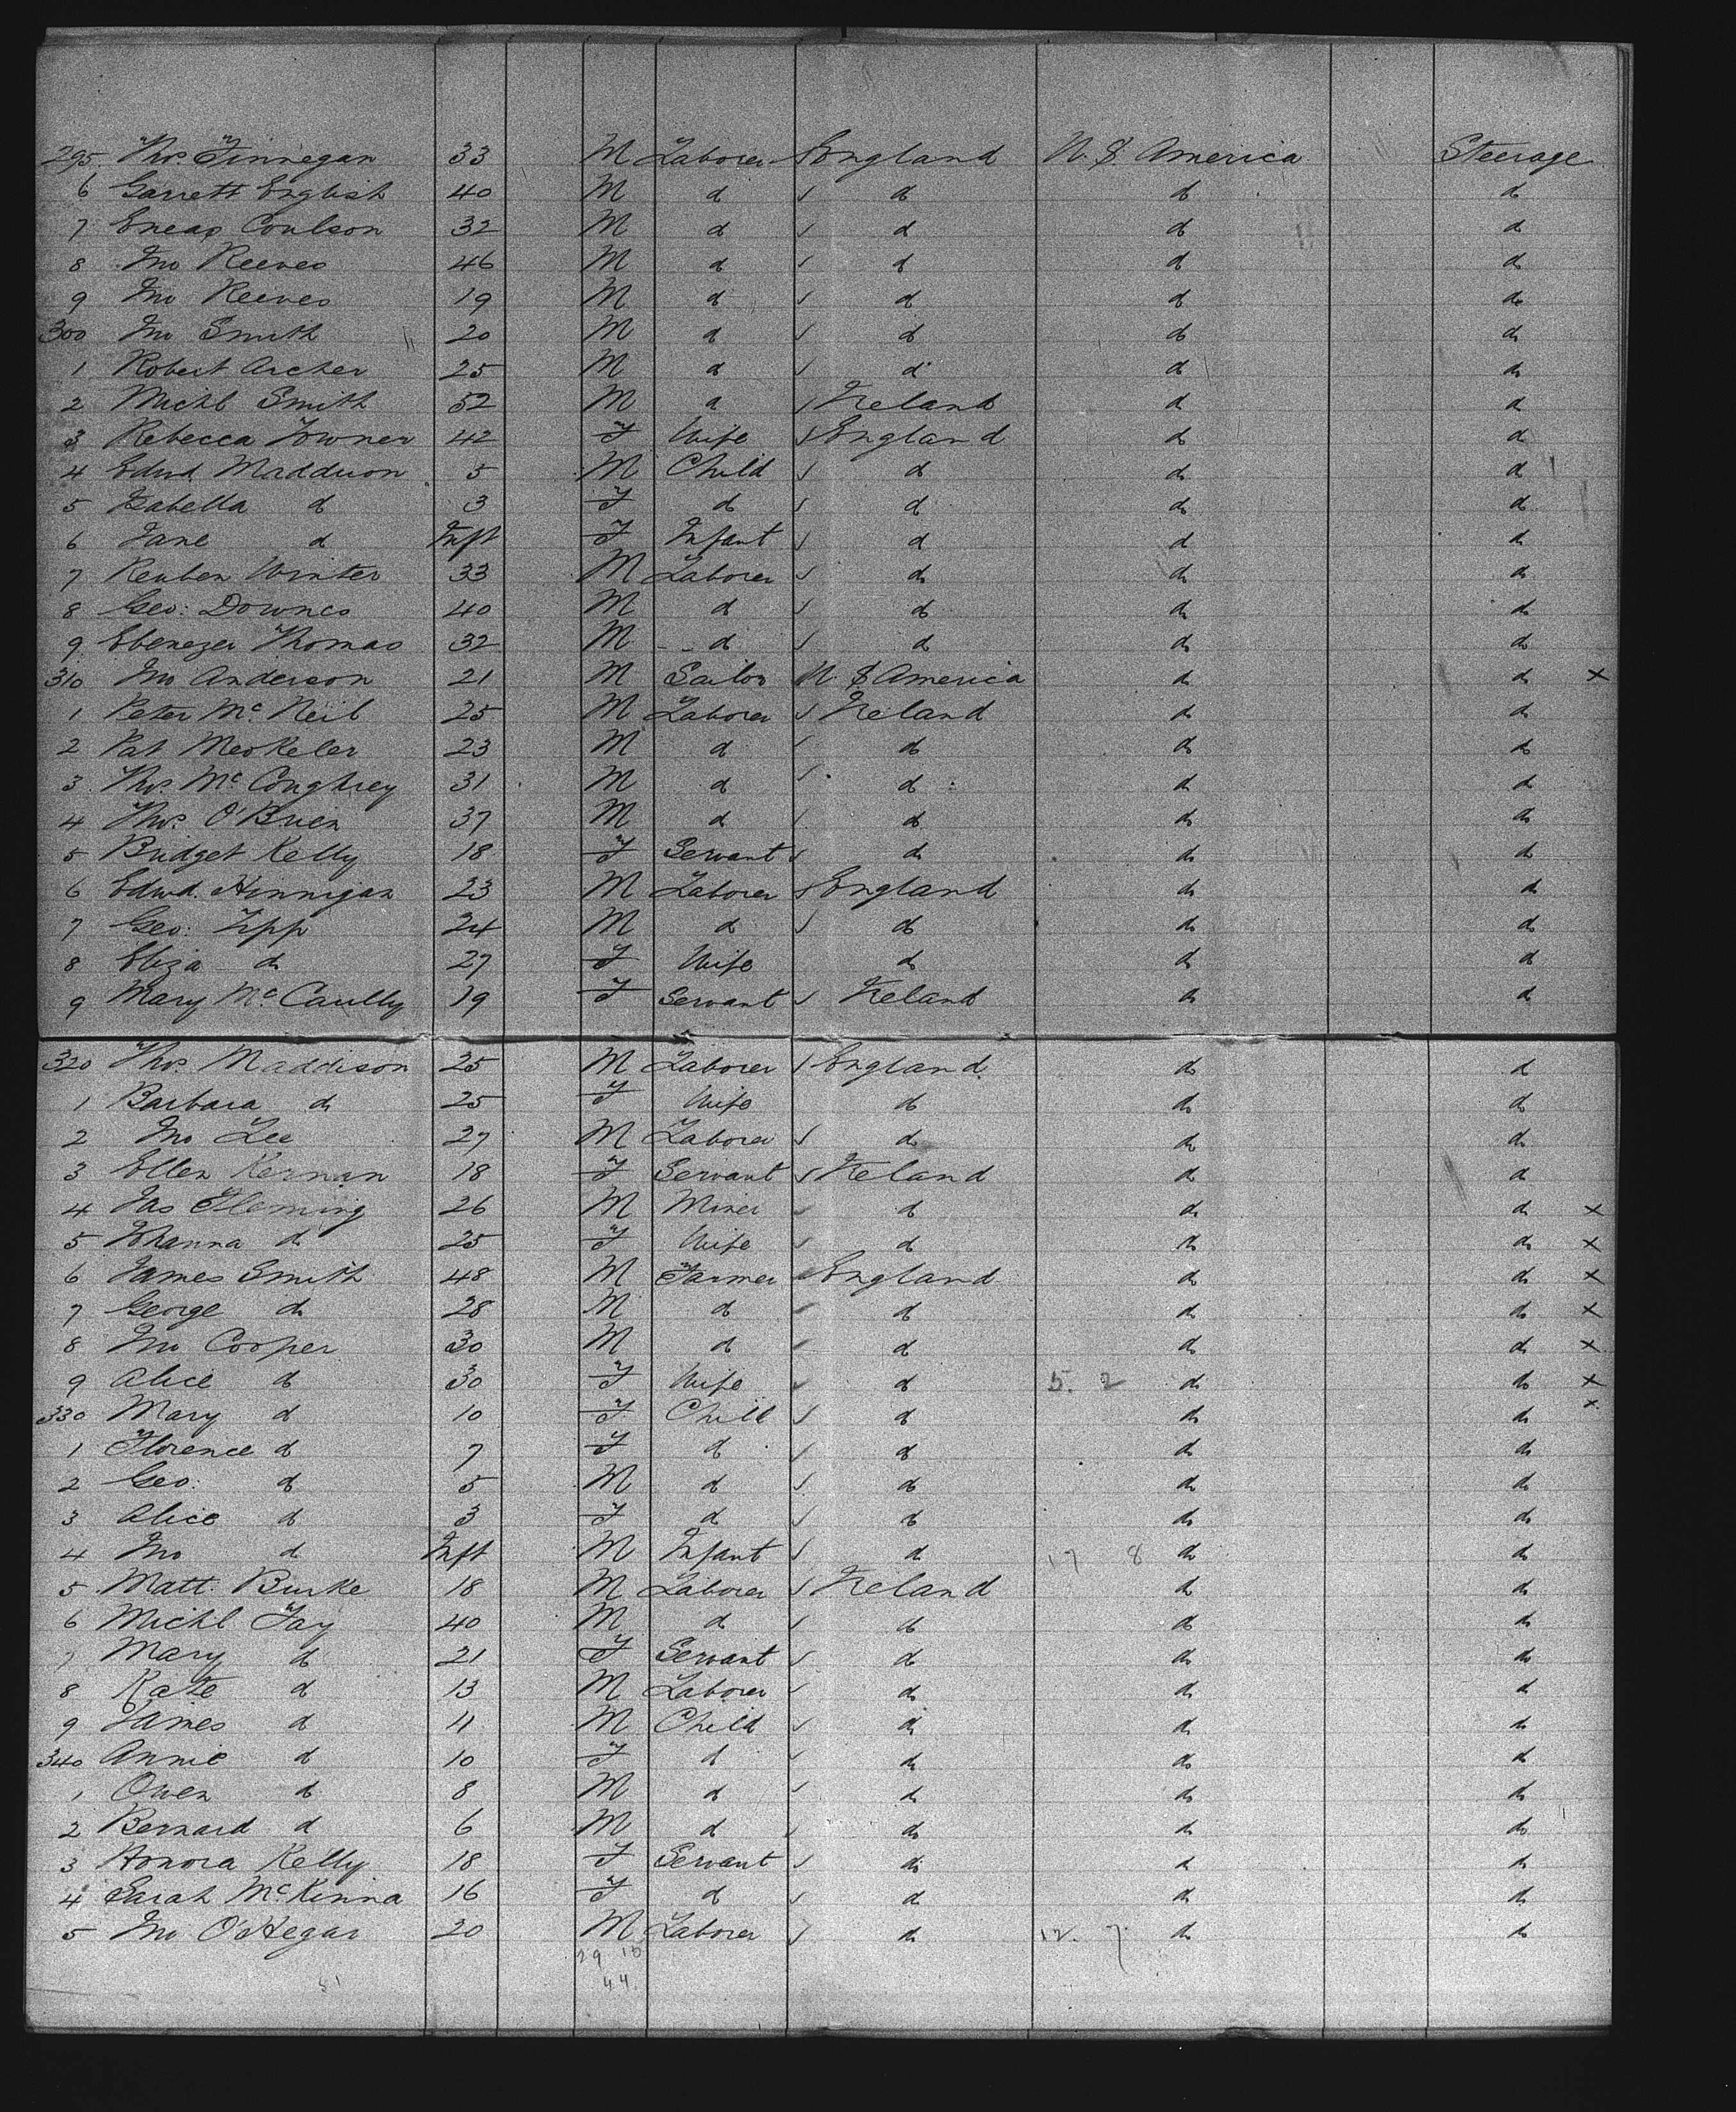 295 Thos. Finnegan 33 M Laborer England U. S. America Steerage
6 Garrett English 40 M d d d d
7 Eneas Coulson 32 M d d d d
8 Jno Reeves 46 M d d d d
9 Jno Reeves 19 M d d d d
300 Jno Smith 20 M d d d d
1 Robert Archer 25 M d d d d
2 Michl Smith 52 M d Ireland d d
3 Rebecca Towner 42 F Wife England d d
4 Edwd. Maddison 5 M Child d d d
5 Isabella d 3 F d d d d
6 Jane d Inft F Infant d d d
7 Reuben Winter 33 M Laborer d d d
8 Geo: Downes 40 M d d d d
9 Ebenezer Thomas 32 M d d d d
310 Jno Anderson 21 M Sailor U. S. America d d x
1 Peter Mc Neil 25 M Laborer Ireland d d
2 Pat 23 M d d d d
3 Thos. Mc Coughrey 31 M d d d d
4 Thos. O'Brien 37 M d d d d
5 Bridget Kelly 18 F Servant d d d
6 Edwd. Hinnigan 23 M Laborer England d d
7 Geo: 24 M d d d d
8 Eliza d 27 F Wife d d d
9 Mary Mc Caully 19 F Servant Ireland d d
320 Thos. Maddison 25 M Laborer England d d
1 Barbara d 25 F Wife d d d
2 Jno Lee 27 M Laborer d d d
3 Ellen Kernan 18 F Servant Ireland d d
4 Jas Fleming 26 M Miner d d d x
5 Johanna d 25 F Wife d d d x
6 James Smith 48 M Farmer England d d x
7 George d 28 M d d d d x
8 Jno Cooper 30 M d d d d x
9 Alice d 30 F Wife d 5. 2 d d x
330 Mary d 10 F Child d d d x
1 Florence d 7 F d d d d
2 Geo: d 5 M d d d d
3 Alice d 3 F d d d d
4 Jno d Inft M Infant d 17 8 d d
5 Matt. Burke 18 M Laborer Ireland d d
6 Michl Fay 40 M d d d d
7 Mary d 21 F Servant d d d
8 Kate d 13 M Laborer d d d
9 James d 11 M Child d d d
340 Annie d 10 F d d d d
1 Owen d 8 M d d d d
2 Bernard d 6 M d d d d
3 Honora Kelly 18 F Servant d d d
4 Sarah Mc Kinna 16 F d d d d
5 Jno O'Hegar 20 M Laborer d 12. 7 d d
29 10
44